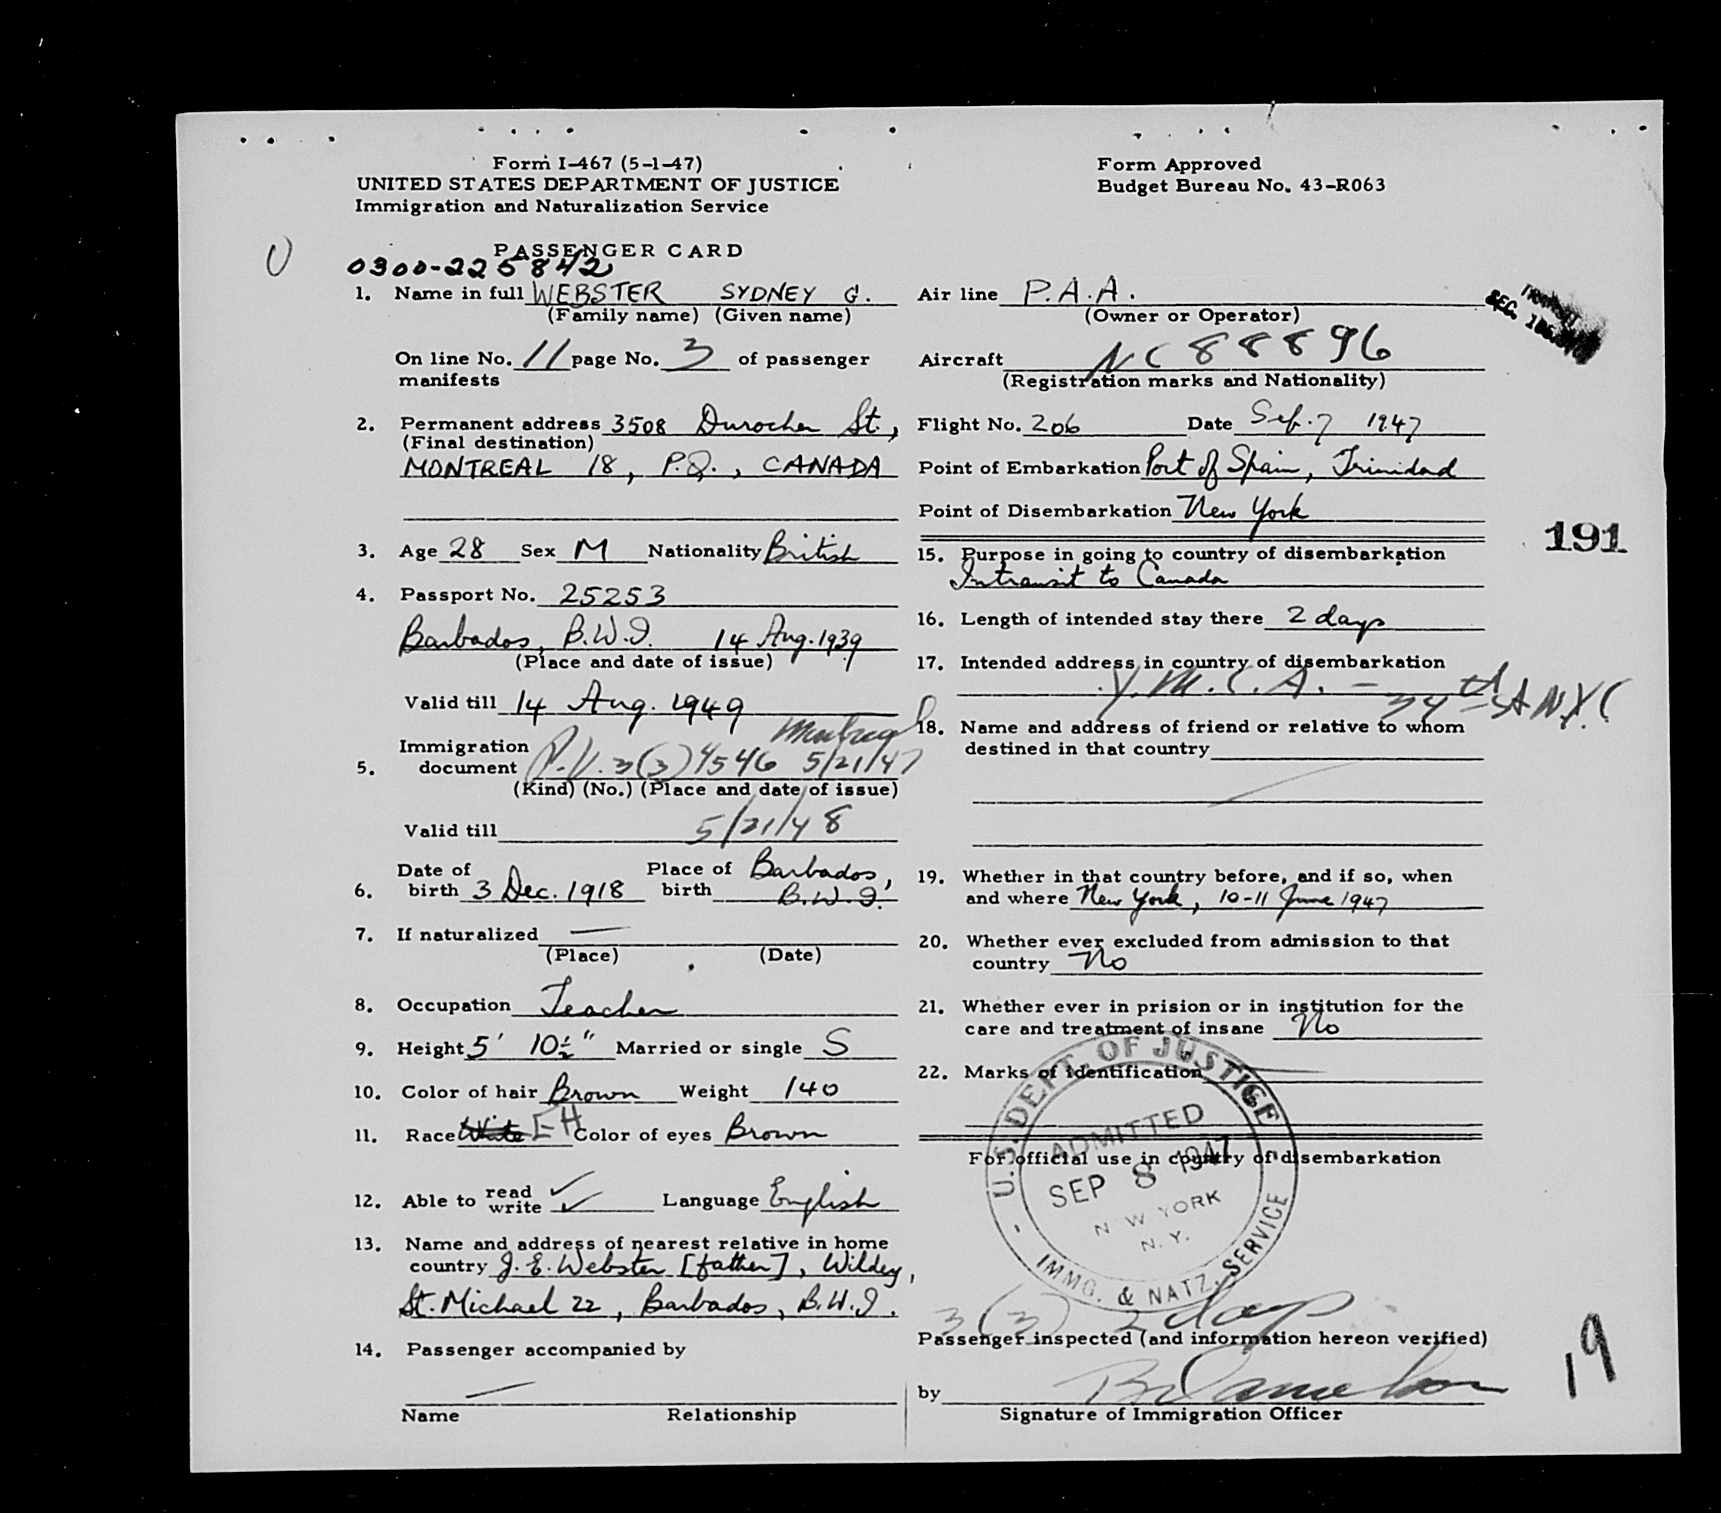 Form I-467 (5-1-47)
UNITED STATES DEPARTMENT OF JUSTICE
Immigration and Naturalization Service
Form Approved
Budget Bureau No. 43-R063
PASSENGER CARD
0300-225842
1. Name in full WEBSTER SYDNEY G.
(Family name) (Given name)
On line No. 11 page No. 3 of passenger
manifests
2. Permanent address 3508 Durocher St.,
(Final destination)
MONTREAL 18, P.Q., CANADA
3. Age 28 Sex M Nationality British
4. Passport No. 25253
Barbados, B.W.I. 14 Aug. 1939
(Place and date of issue)
Valid till 14 Aug. 1949
Montreal
5. Immigration
document P.V. 3(3) 4546 5/21/47
(Kind) (No.) (Place and date of issue)
Valid till 5/21/48
6. Date of birth 3 Dec. 1918 Place of birth Barbados,
B.W.I.
7. If naturalized —
(Place) (Date)
8. Occupation Teacher
9. Height 5' 10½" Married or single S
10. Color of hair Brown Weight 140
11. Race White EH Color of eyes Brown
12. Able to read ✓ write ✓ Language English
13. Name and address of nearest relative in home
country J. E. Webster [father], Wildey,
St. Michael 22, Barbados, B.W.I.
14. Passenger accompanied by
—
Name Relationship
Air line P.A.A.
(Owner or Operator)
Aircraft NC 88896
(Registration marks and Nationality)
Flight No. 206 Date Sep. 7 1947
Point of Embarkation Port of Spain, Trinidad
Point of Disembarkation New York
15. Purpose in going to country of disembarkation
Intransit to Canada
16. Length of intended stay there 2 days
17. Intended address in country of disembarkation
Y.M.C.A. - 34th St N.Y.C.
18. Name and address of friend or relative to whom
destined in that country
19. Whether in that country before, and if so, when
and where New York, 10-11 June 1947
20. Whether ever excluded from admission to that
country No
21. Whether ever in prision or in institution for the
care and treatment of insane No
22. Marks of identification
For official use in country of disembarkation
U.S. DEPT. OF JUSTICE
ADMITTED
SEP 8 1947
N W YORK
N.Y.
IMMG. & NATZ. SERVICE
3(3) 2 days
Passenger inspected (and information hereon verified)
by
Signature of Immigration Officer
SEC.
191
19